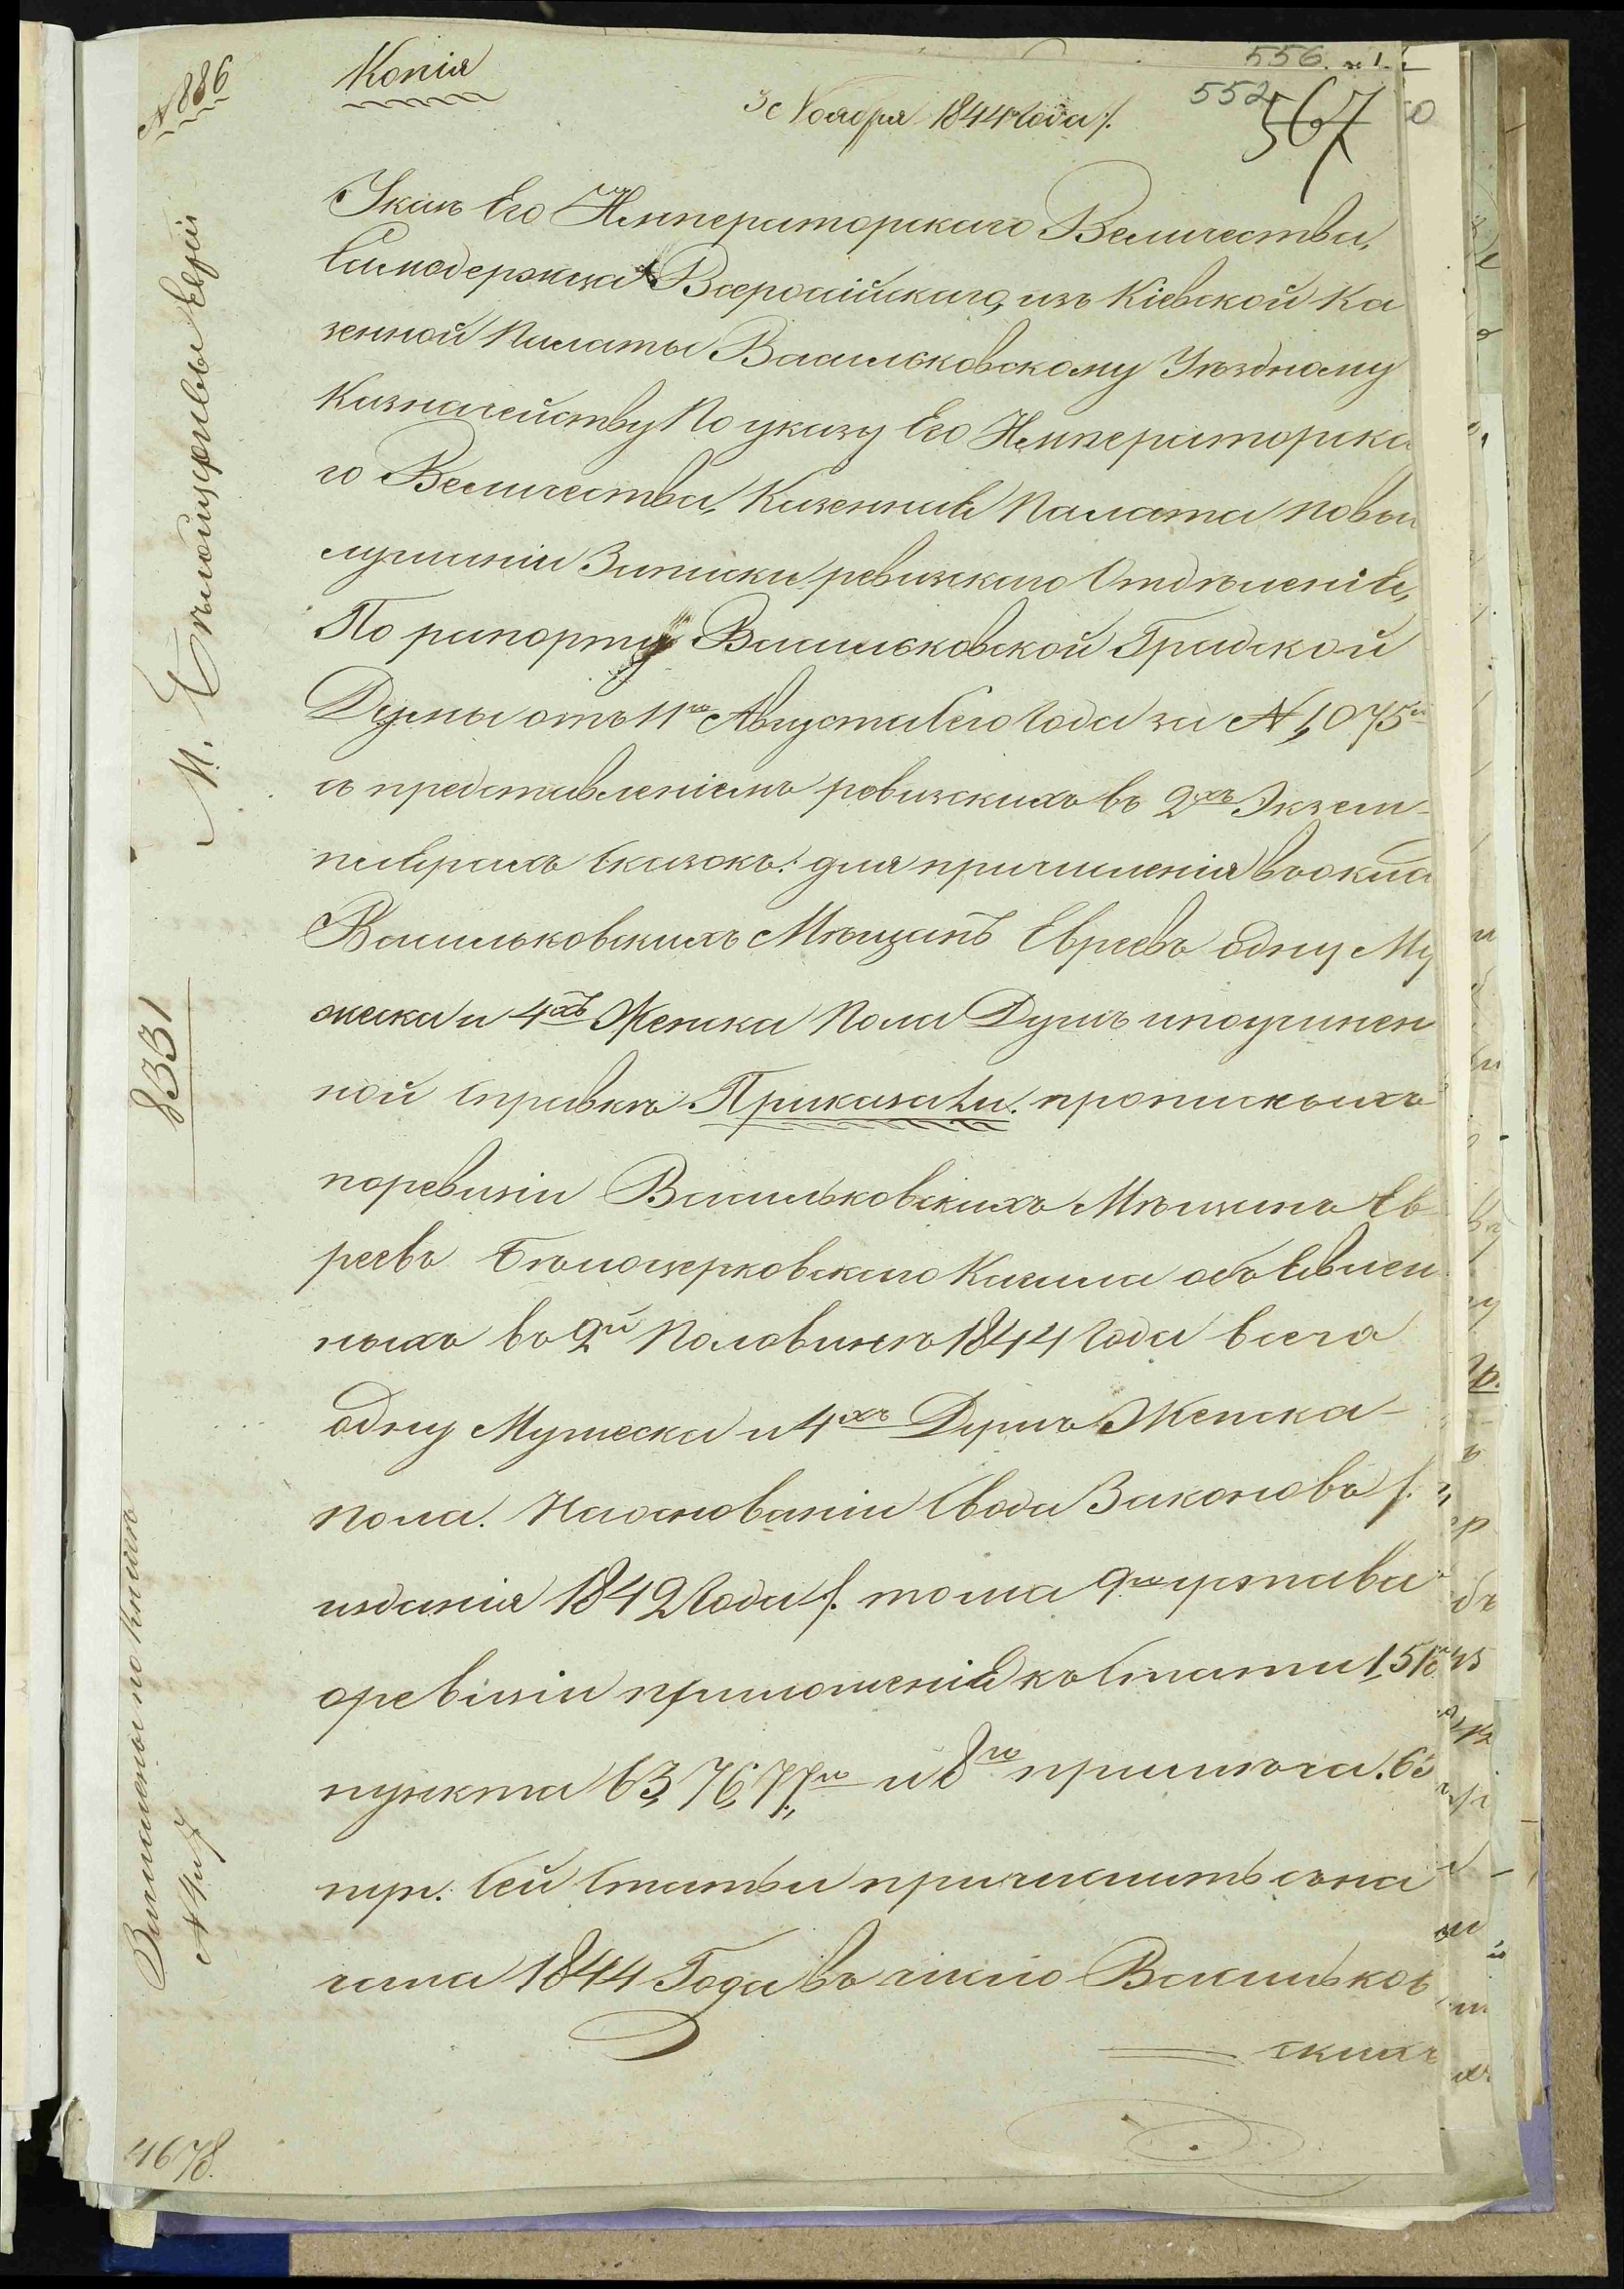 № 886
Копія
556.
552
567
3 Ноября 1844 Года
Указъ Его Императорскаго Величества,
Самодержца Всероссійскаго, изъ Кіевской Ка
зенной Палаты Васильковскому Уѣздному
Казначейству По указу Его Императорска
го Величества, Казенная Палата по вы
слушаніи Записки ревизскаго Отдѣленія,
По рапорту Васильковской Градской
Думы отъ 11го Августа сего Года за № 1,075
съ представленіемъ ревизскихъ въ 2хъ Экзем-
плярахъ Сказокъ: для причисленія въ окла
Васильковскихъ Мѣщанъ Евреевъ одну Му
жеска и 4хъ Женска Пола Душъ и по учинен
ной Справкѣ Приказали: прописныхъ
по ревизіи Васильковскихъ Мѣщанъ Ев
реевъ Бѣлоцерковскаго Кагала объявлен
ныхъ во 2й Половинѣ 1844 Года всего
одну Мужеска и 4хъ Душъ Женска
пола. На основаніи Свода Законовъ /.
изданія 1842 Года /. тома 9го устава
о ревизіи приложенія къ Статьи 1,516
пункта 63, 76, 77го и 8го примѣча. 63
пун. Сей Статьи причислить съ на
чала 1844 Года въ число Васильков
скихъ
М. Бѣлоцерквы Евреи
8331
Записаны по книгѣ
№ 4м7
4678.